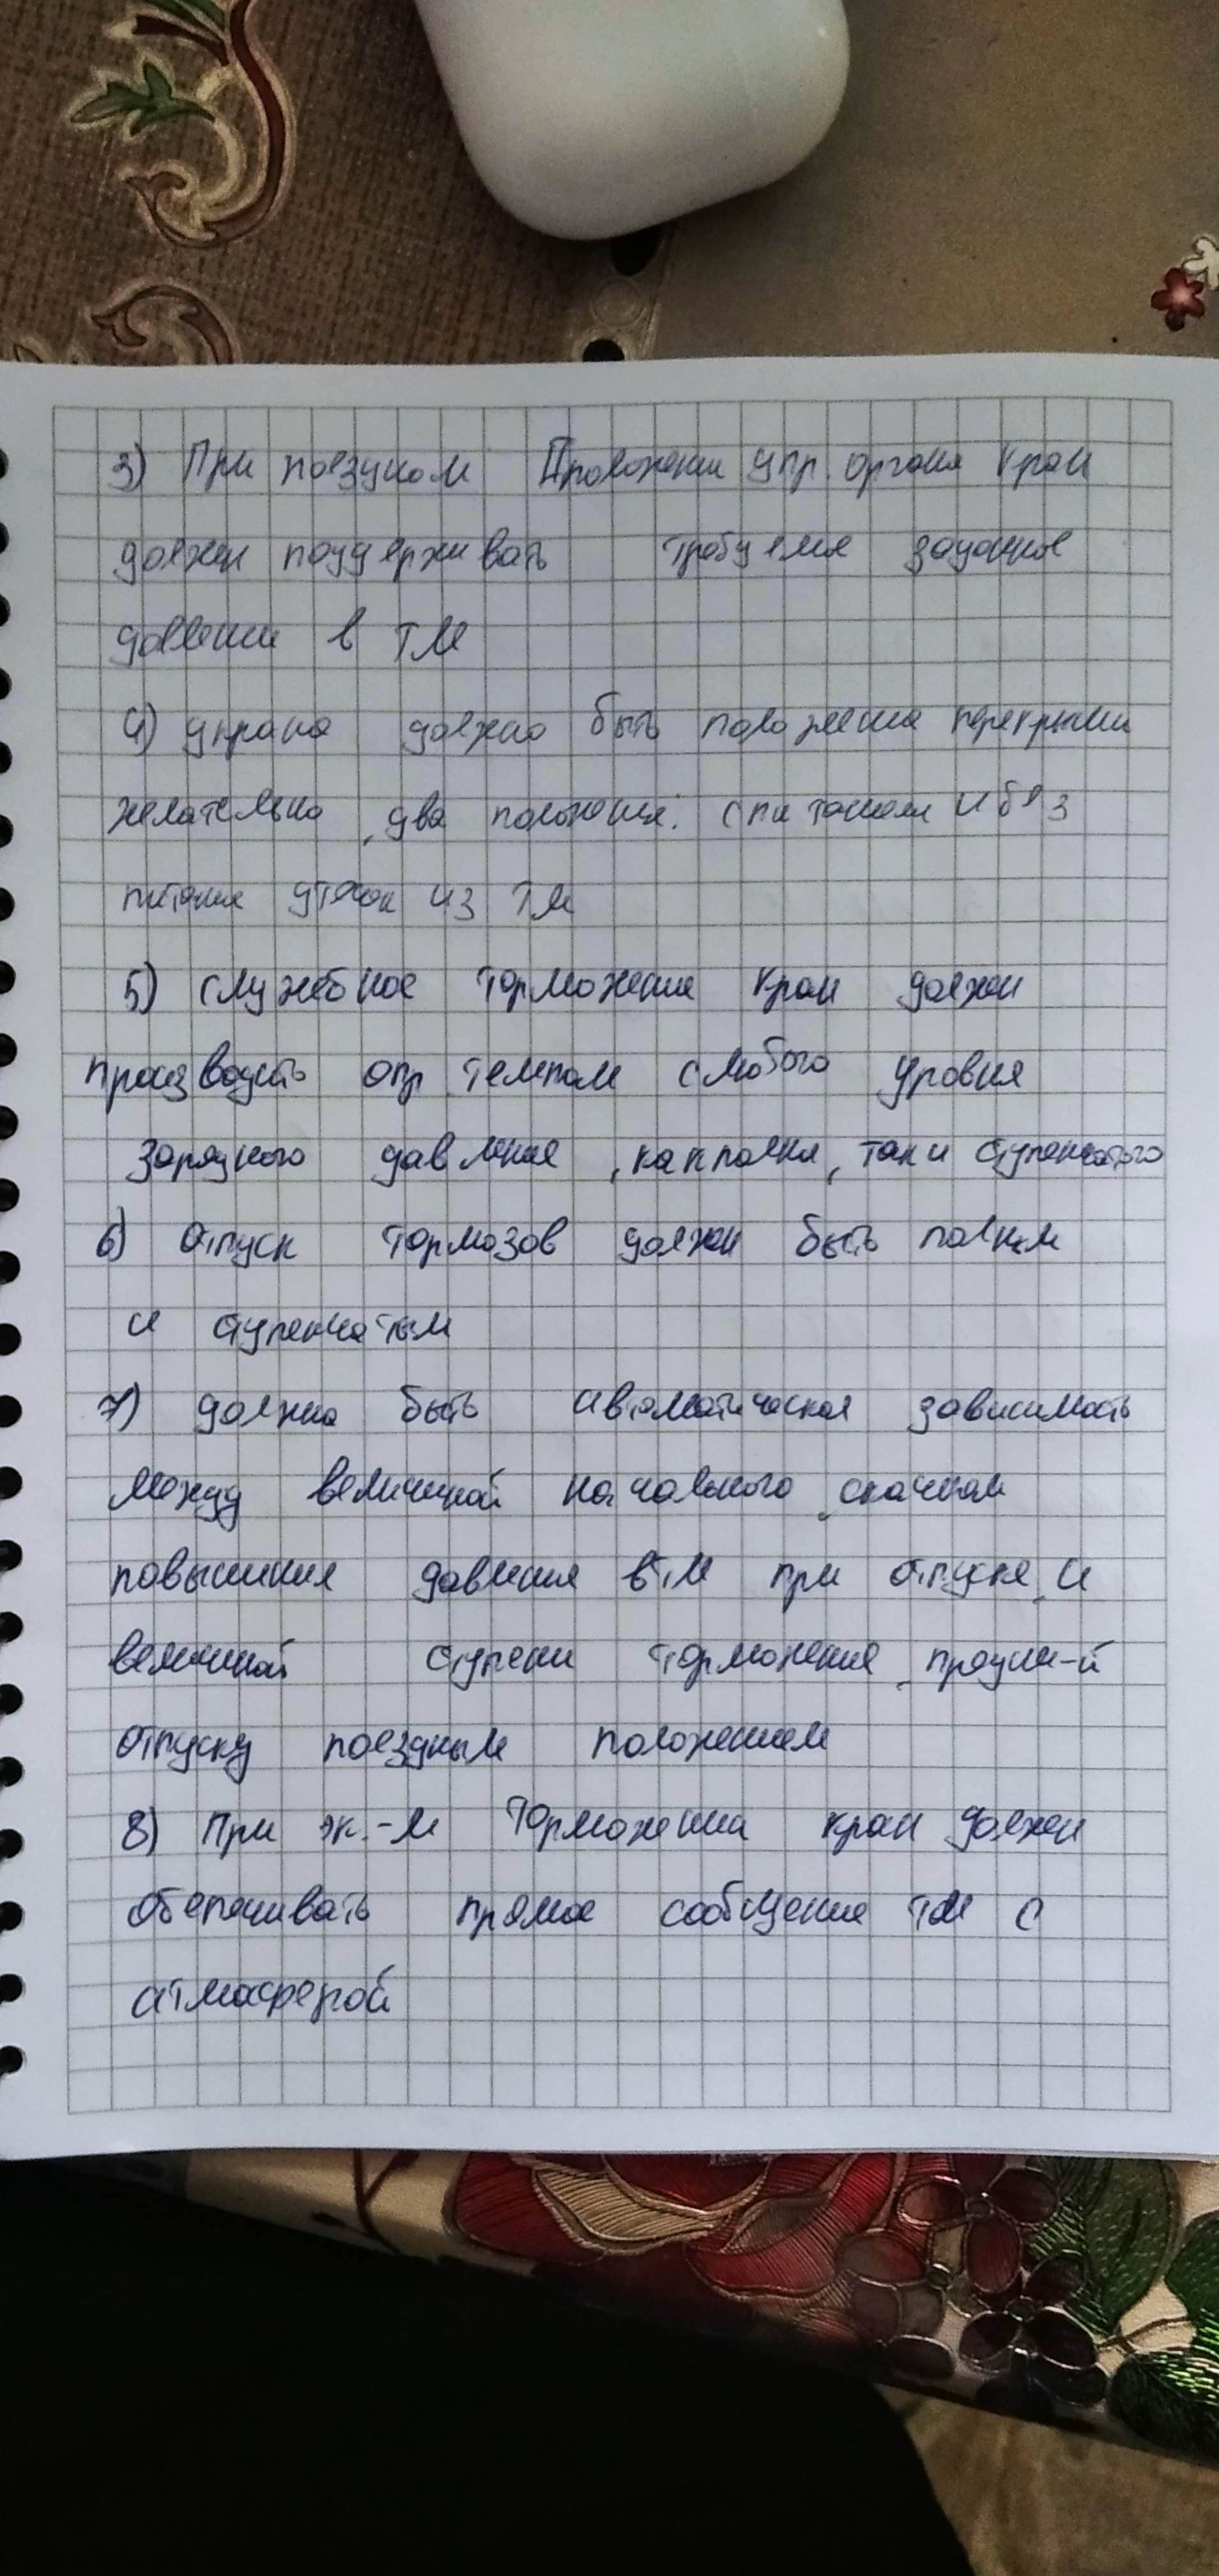 3) При поездном Проложении упр. органа кран
должен поддерживать требуемое заданное
давление в ТМ
4) у крана должно быть положения перекрыши
желательно, два положения: с питанием и без
питания утечек из ТМ
5) Служебное торможение кран должен
производить опр темпом с любого уровня
зарядного давления, как полного, так и ступенчатого
6) Отпуск тормозов должен быть полным
и ступенчатым
7) должна быть автоматическая зависимость
между величиной начального скачком
повышения давления в ТМ при отпуске и
величиной ступени торможения,
отпуску поездным положением
8) При эк.-м Торможении кран должен
обеспечивать прямое сообщение ТМ с
атмосферой